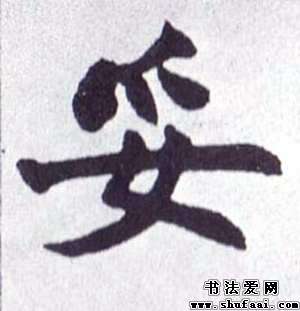 妥
书法爱网
www.shufaai.com